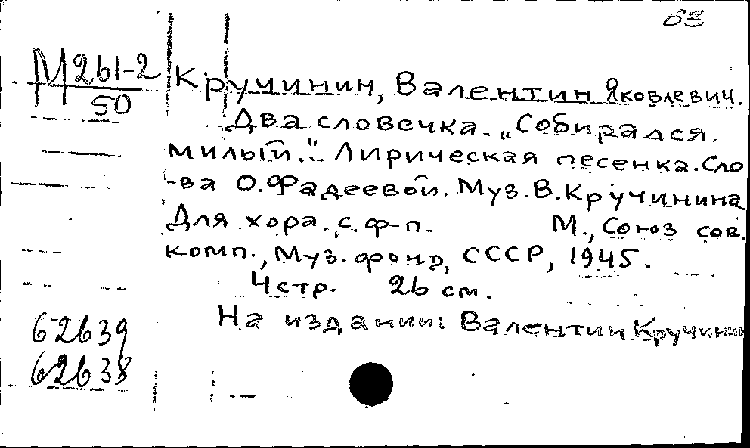 63
М261-2
50
Кручинин, Валентин Яковлевич.
Два словечка. „Собирался
милый." Лирическая песенка. Сло
-ва О.Фадеевой. Муз. В.Кручинина
Для хора. с. ф-п. М., Союз сов.
комп., Муз. фонд, СССР, 1945.
4стр. 26 см.
На издании: Валентин Кручинин
62639
62638